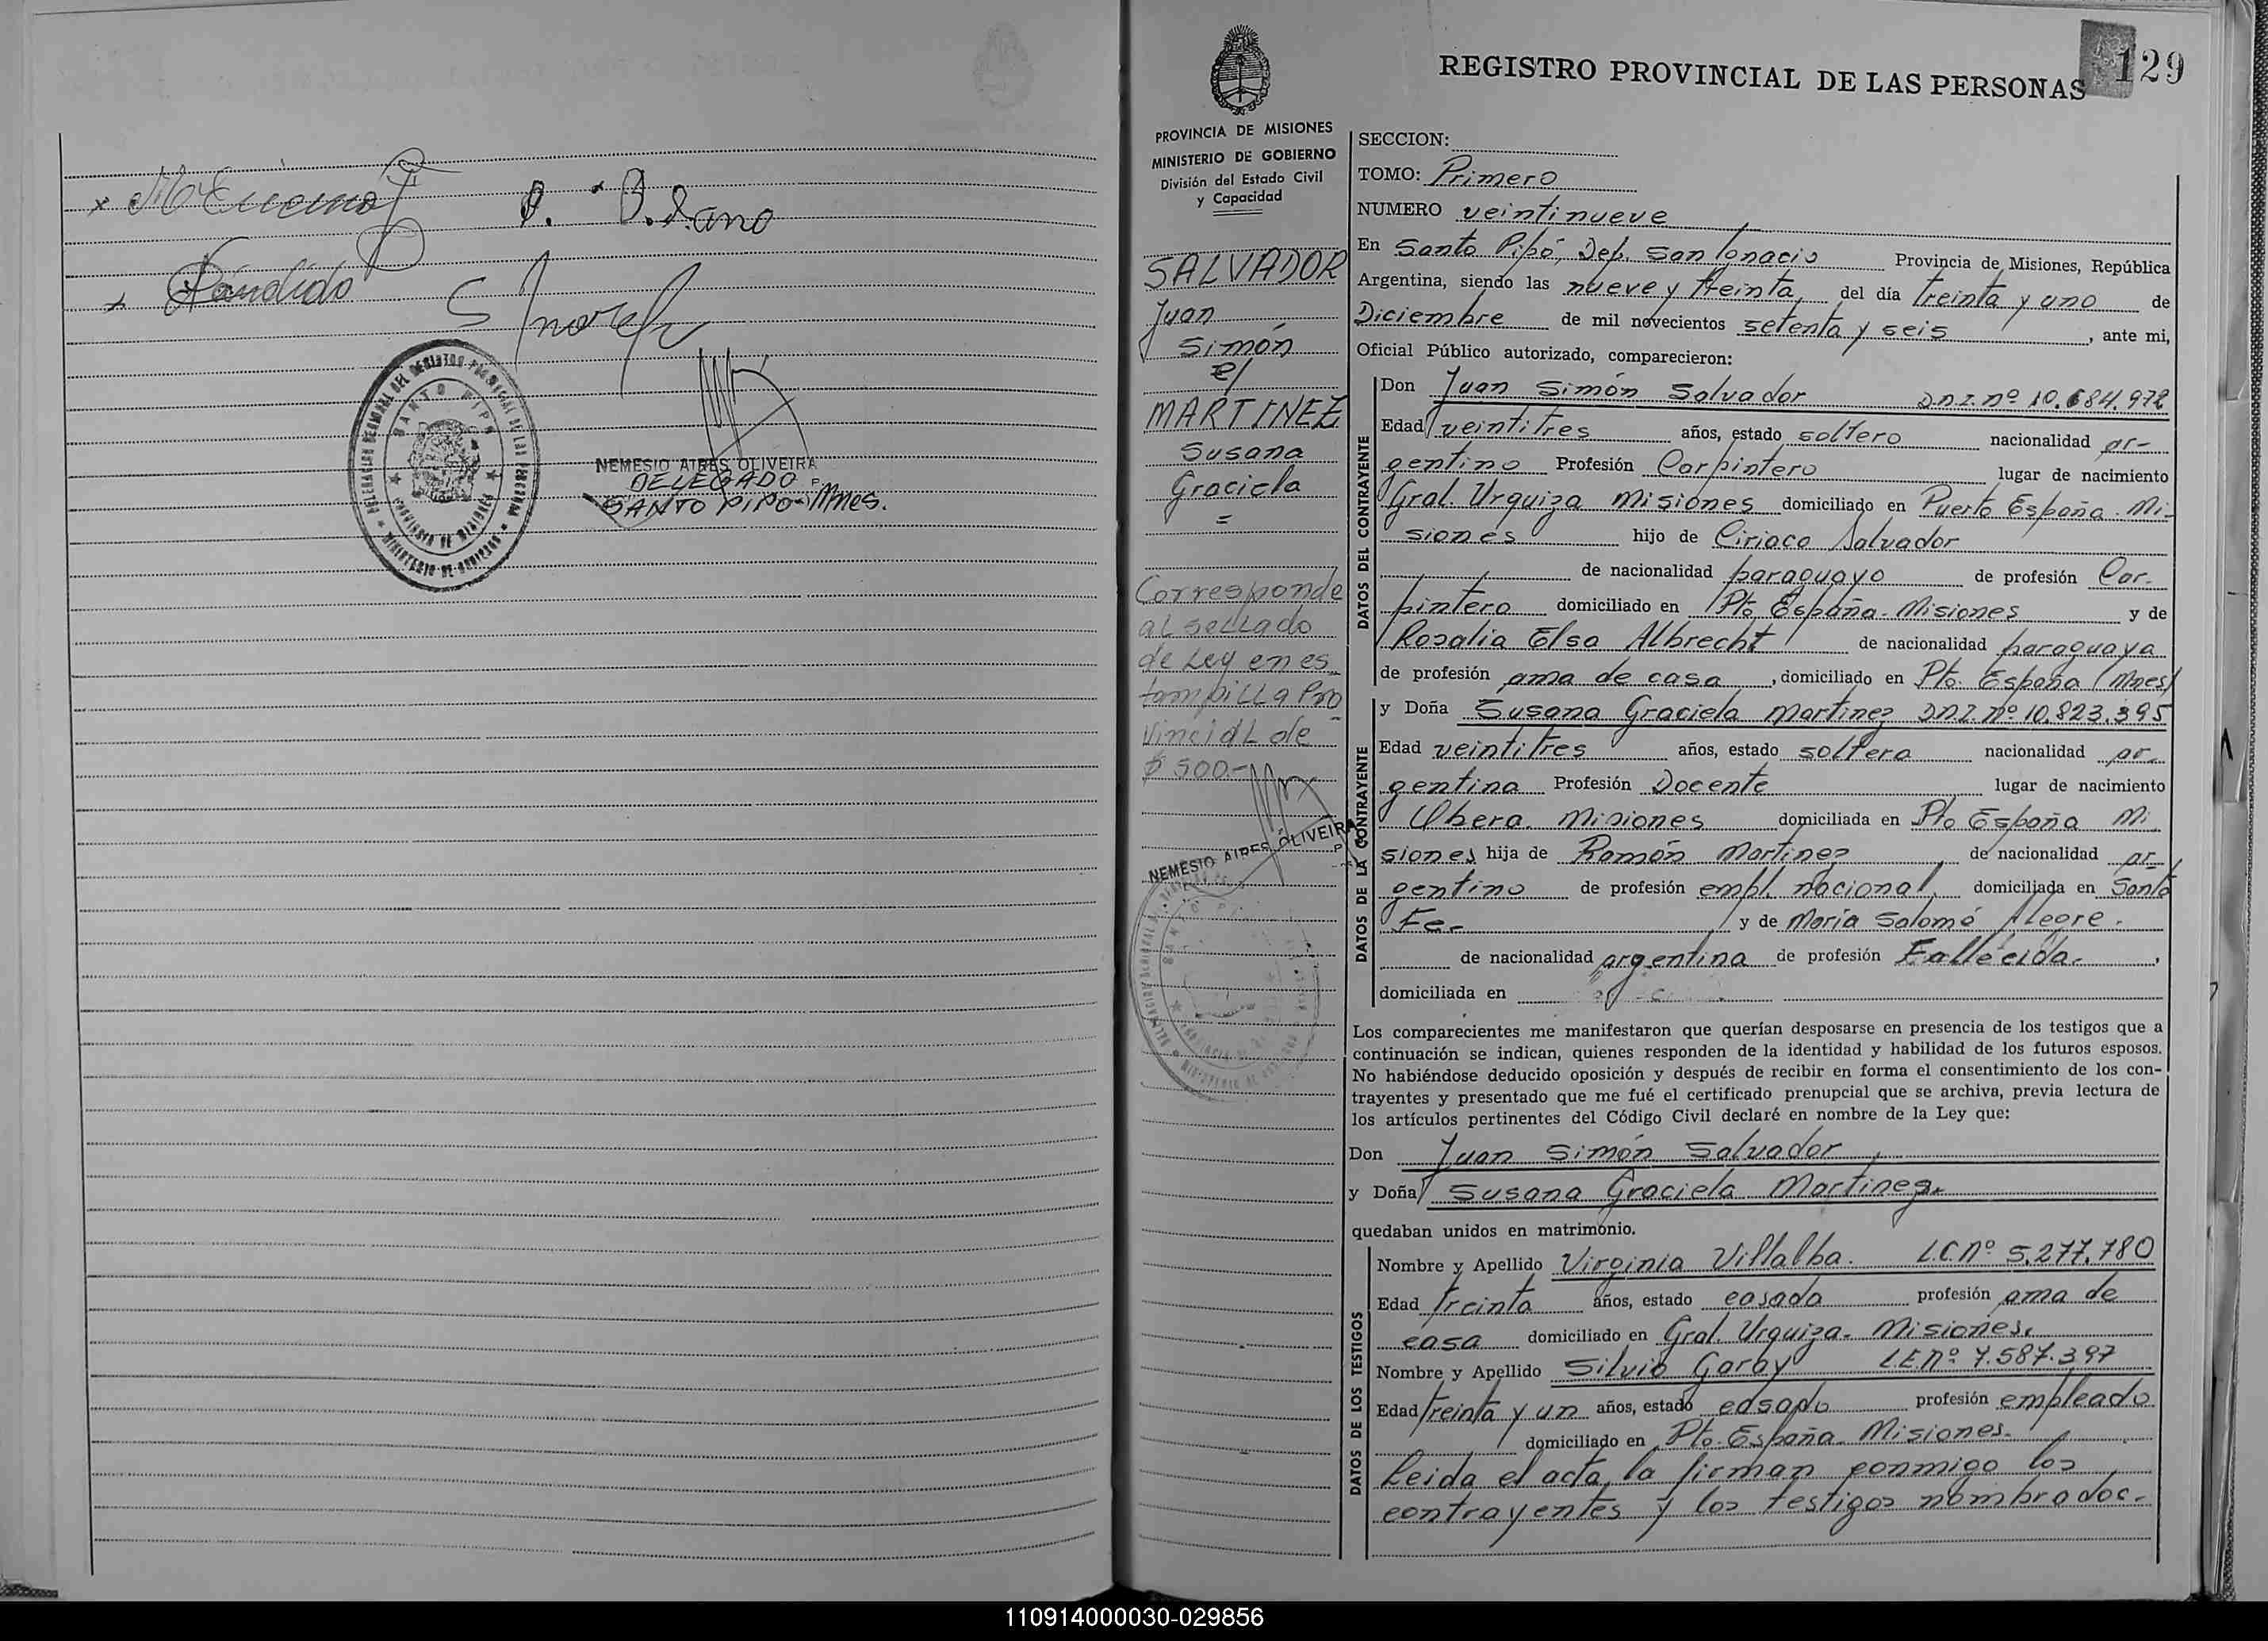 Cándido
NEMESIO AIRES OLIVEIRA
DELEGADO
SANTO PIPO - Mnes.
SANTO PIPO
129
REGISTRO PROVINCIAL DE LAS PERSONAS
PROVINCIA DE MISIONES
MINISTERIO DE GOBIERNO
División del Estado Civil
y Capacidad
SALVADOR
Juan
Simón
c/
MARTINEZ
Susana
Graciela
=
Corresponde
al sellado
de Ley en es
tampilla Pro
vincial de
$ 500.-
NEMESIO AIRES OLIVEIRA
SECCION:
TOMO: Primero
NUMERO veintinueve
En Santo Pipó, Dep. San Ignacio Provincia de Misiones, República
Argentina, siendo las nueve y treinta, del día treinta y uno de
Diciembre de mil novecientos setenta y seis, ante mi,
Oficial Público autorizado, comparecieron:
DATOS DEL CONTRAYENTE
Don Juan Simón Salvador D.N.I. nº 10.684.972
Edad veintitres años, estado soltero nacionalidad ar-
gentino Profesión Carpintero lugar de nacimiento
Gral. Urquiza Misiones domiciliado en Puerto España. Mi-
siones hijo de Ciriaco Salvador
de nacionalidad paraguayo de profesión Car-
pintero domiciliado en Pto España - Misiones y de
Rosalia Elsa Albrecht de nacionalidad paraguaya
de profesión ama de casa, domiciliado en Pto. España (Mnes)
DATOS DE LA CONTRAYENTE
y Doña Susana Graciela Martinez D.N.I. nº 10.823.395
Edad veintitres años, estado soltera nacionalidad ar-
gentina Profesión Docente lugar de nacimiento
Obera. Misiones domiciliada en Pto España Mi
siones hija de Ramón Martinez, de nacionalidad ar-
gentino de profesión empl. nacional, domiciliada en Santa
Fe.- y de Maria Salomé Alegre.
de nacionalidad argentina de profesión Fallecida.
domiciliada en
Los comparecientes me manifestaron que querían desposarse en presencia de los testigos que a
continuación se indican, quienes responden de la identidad y habilidad de los futuros esposos.
No habiéndose deducido oposición y después de recibir en forma el consentimiento de los con-
trayentes y presentado que me fué el certificado prenupcial que se archiva, previa lectura de
los artículos pertinentes del Código Civil declaré en nombre de la Ley que:
Don Juan Simón Salvador
y Doña Susana Graciela Martinez
quedaban unidos en matrimonio.
DATOS DE LOS TESTIGOS
Nombre y Apellido Virginia Villalba. L.C. Nº 5.277.780
Edad treinta años, estado casada profesión ama de
casa domiciliado en Gral. Urquiza - Misiones.
Nombre y Apellido Silvio Garay L.E. nº 7.587.397
Edad treinta y un años, estado casado profesión empleado
domiciliado en Pto. España - Misiones.
Leida el acta, la firman conmigo los
contrayentes y los testigos nombrados.-
110914000030-029856